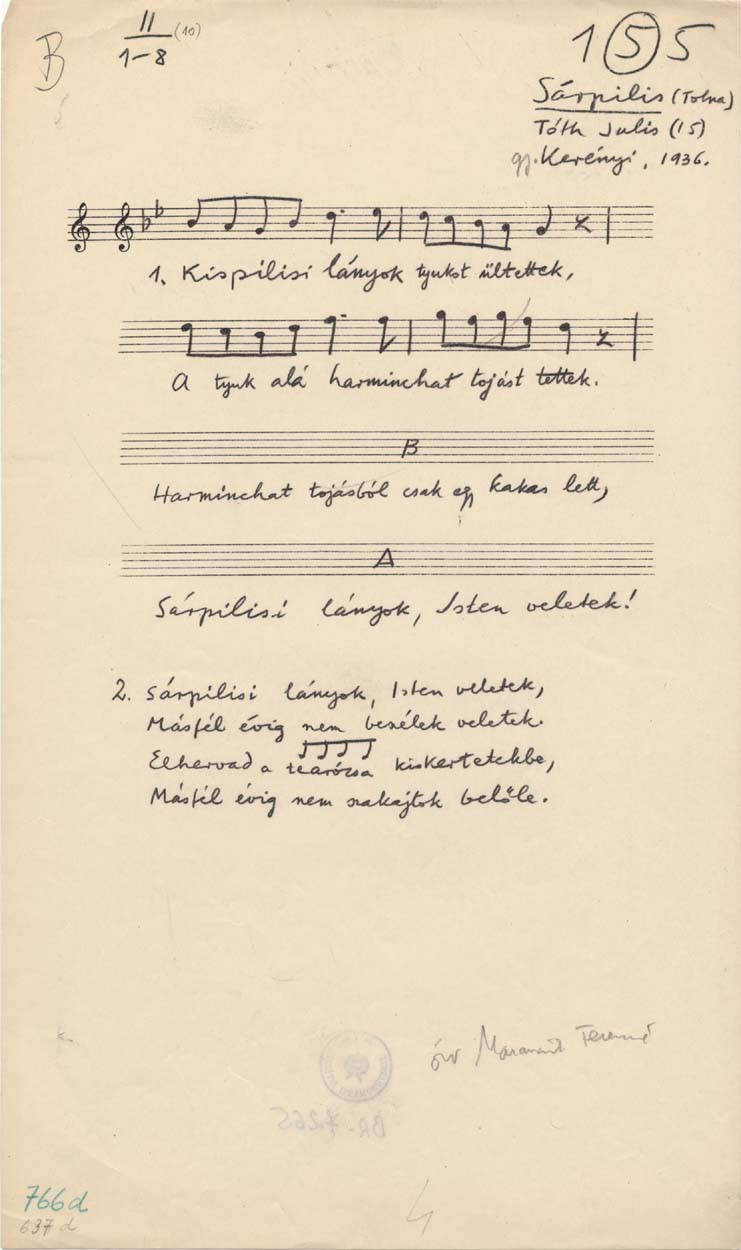 B
II (10)
1-8
1 5 5
Sárpilis (Tolna)
Tóth Julis (15)
gy. Kerényi, 1936.
1. Kispilisi lányok tyukot ültettek,
A tyuk alá harminchat tojást tettek.
B
Harminchat tojásból csak egy kakas lett,
A
Sárpilisi lányok, Isten veletek!
2. Sárpilisi lányok, Isten veletek,
Másfél évig nem beszélek veletek.
Elhervad a tearózsa kiskertetekbe,
Másfél évig nem szakajtok belőle.
BR. 7265
766d
637 d
4